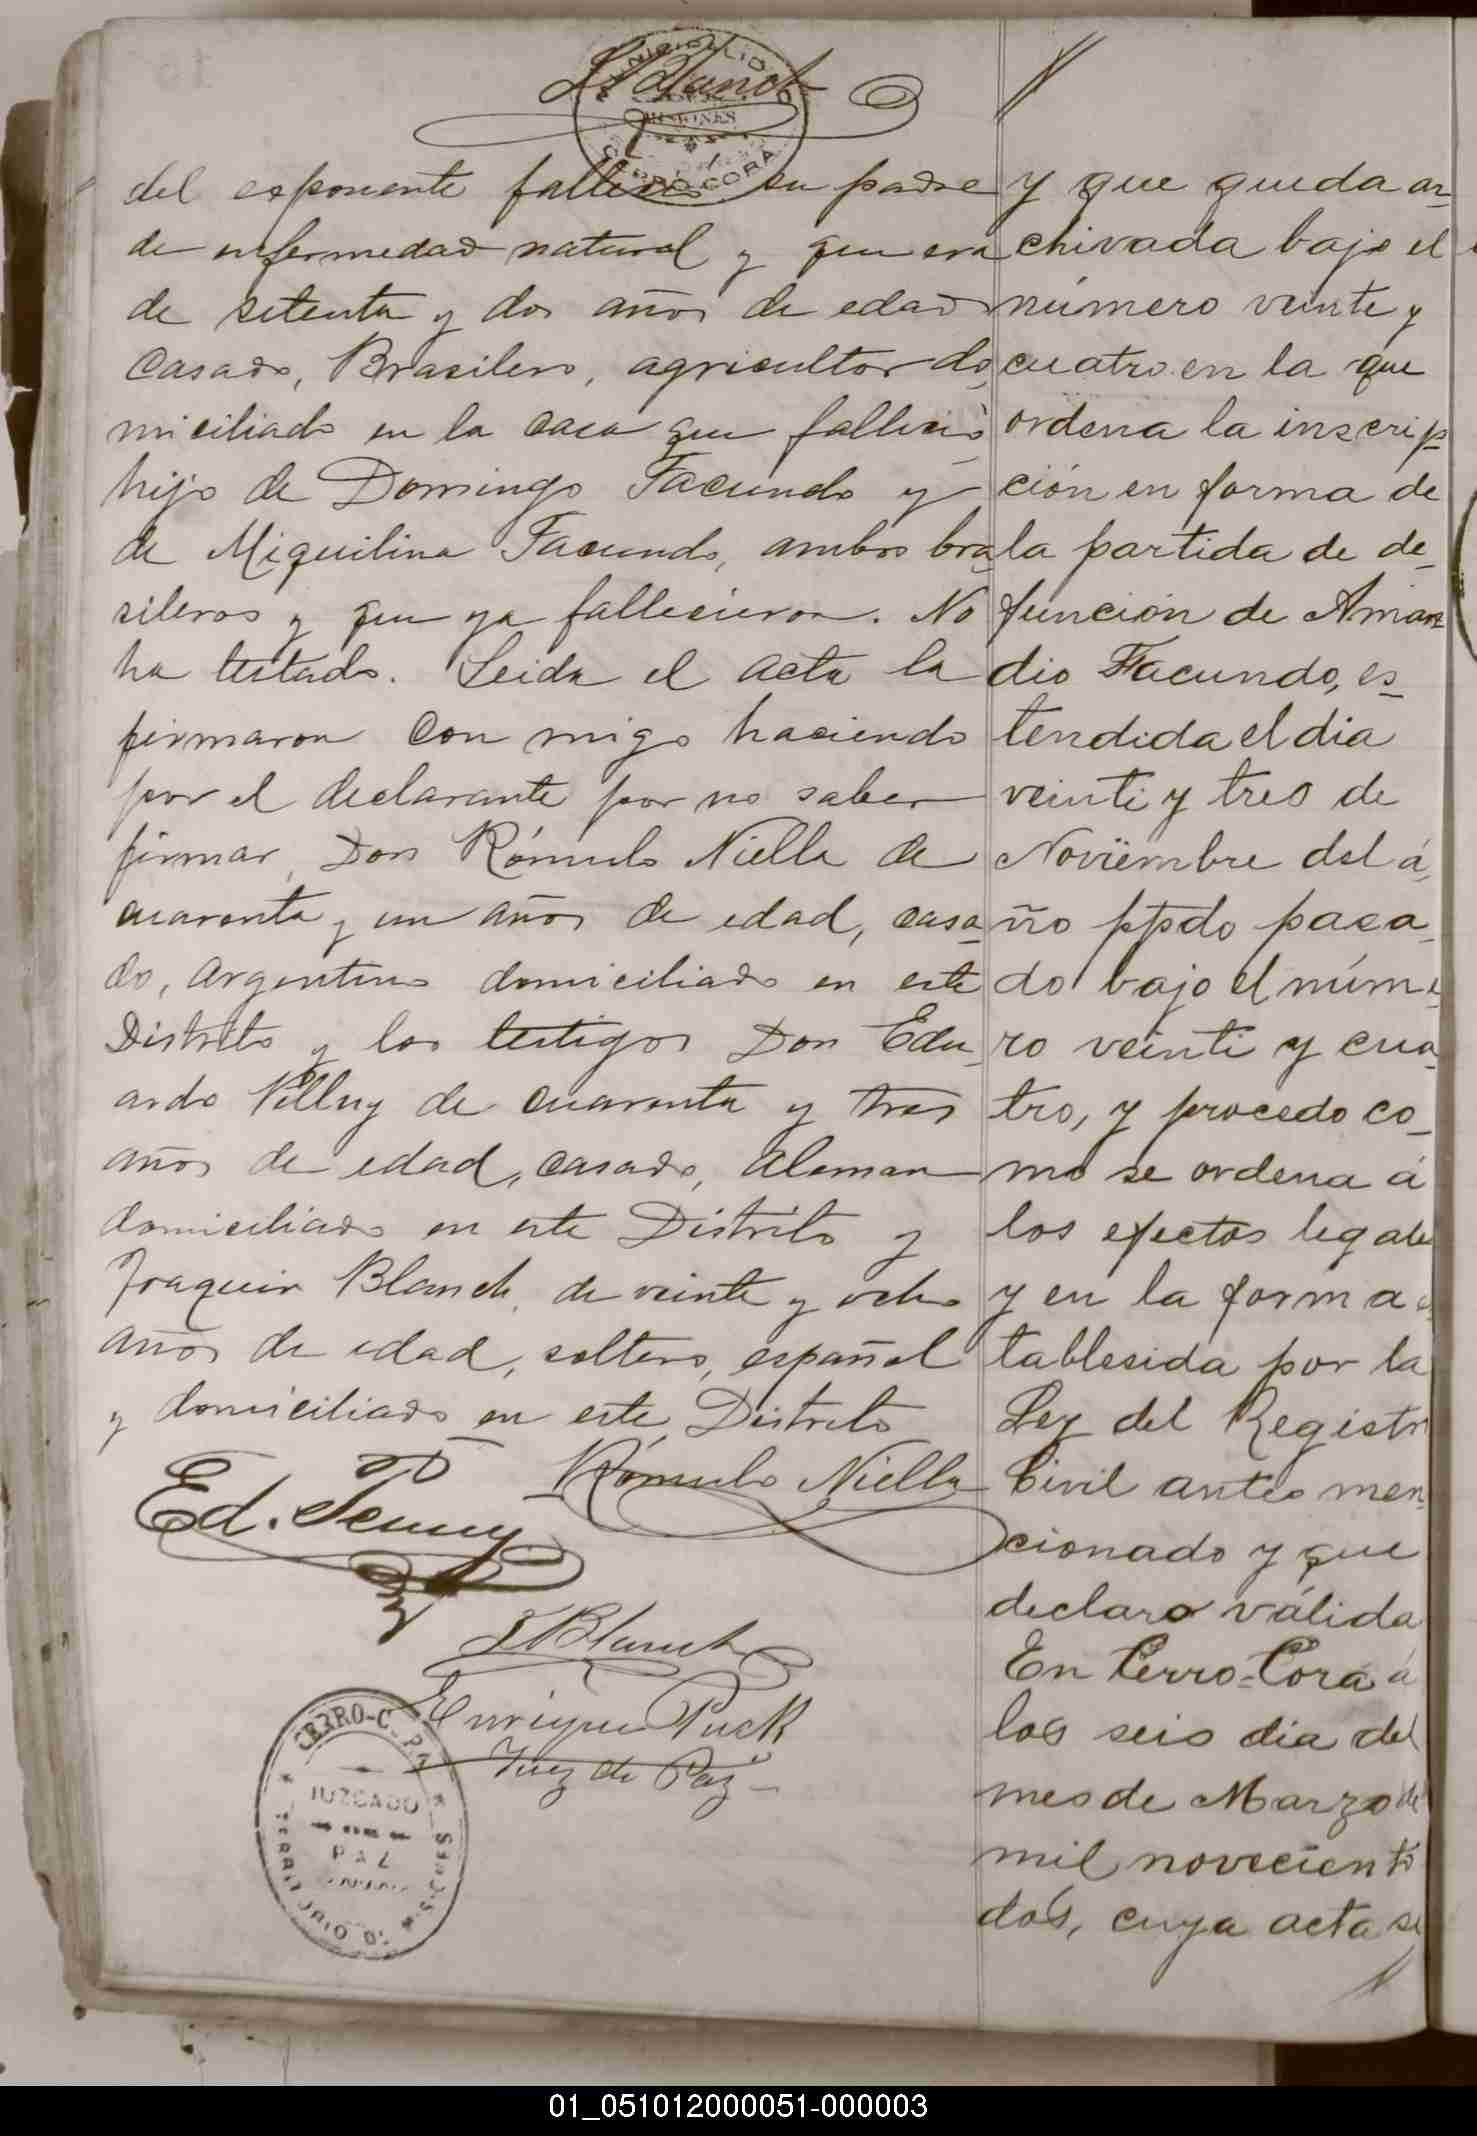 J Blanch
del esponente fallecio su padre
de enfermedad natural y que era
de setenta y dos años de edad
Casado, Brasilero, agricultor do,
miciliado en la casa que fallecio
hijo de Domingo Facundo y
de Miquilina Facundo, ambos bra,
sileros y que ya fallecieron. No
ha testado. Leida el acta la
firmaron con migo haciendo
por el declarante por no saber
firmar, Don Rómulo Niella de
cuarenta y un años de edad, casa-
do, argentino domiciliado en este
Distrito y los testigos Don Edu-
ardo de cuarenta y tres
años de edad, casado, aleman
domiciliado en este Distrito y
Joaquin Blanch, de veinte y ocho
años de edad, soltero, español
y domiciliado en este Distrito
Rómulo Niella
Ed.
J Blanch
Enrique Puck
Juez de Paz
CERRO-C
JUZGADO
PAZ
y que queda ar-
chivada bajo el
número veinte y
cuatro en la que
ordena la inscrip-
ción en forma de
la partida de de-
función de Aman
dio Facundo, es-
tendida el dia
veinte y tres de
Noviembre del á,
ño ppdo pasa-
do bajo el núme
ro veinti y cua-
tro, y procedo co-
mo se ordena á
los efectos legale
y en la forma es
tablesida por la
Ley del Registr
Civil antes men-
cionado y que
declaro válida
En Cerro-Corá á
los seis dia del
mes de Marzo de
mil noveciento
dos, cuya acta se
01_051012000051-000003